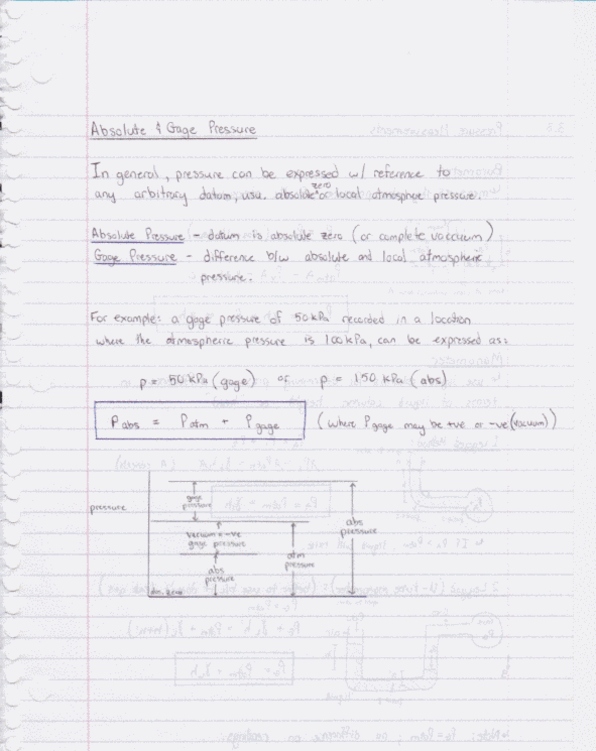 Absolute & Gage Pressure
In general, pressure can be expressed w/ reference to
any arbitrary datum, usu. absolute zero or local atmospheric pressure.
Absolute Pressure - datum is absolute zero (or complete vaccuum)
Gage Pressure - difference b/w absolute and local atmospheric
pressure.
For example: a gage pressure of 50 kPa recorded in a location
where the atmospheric pressure is 100 kPa, can be expressed as:
p = 50 kPa (gage) or p = 150 kPa (abs)
Pabs = Patm + Pgage (where Pgage may be +ve or -ve (vacuum))
pressure
gage
pressure
vacuum = -ve
gage pressure
abs
pressure
atm
pressure
abs
pressure
abs. zero